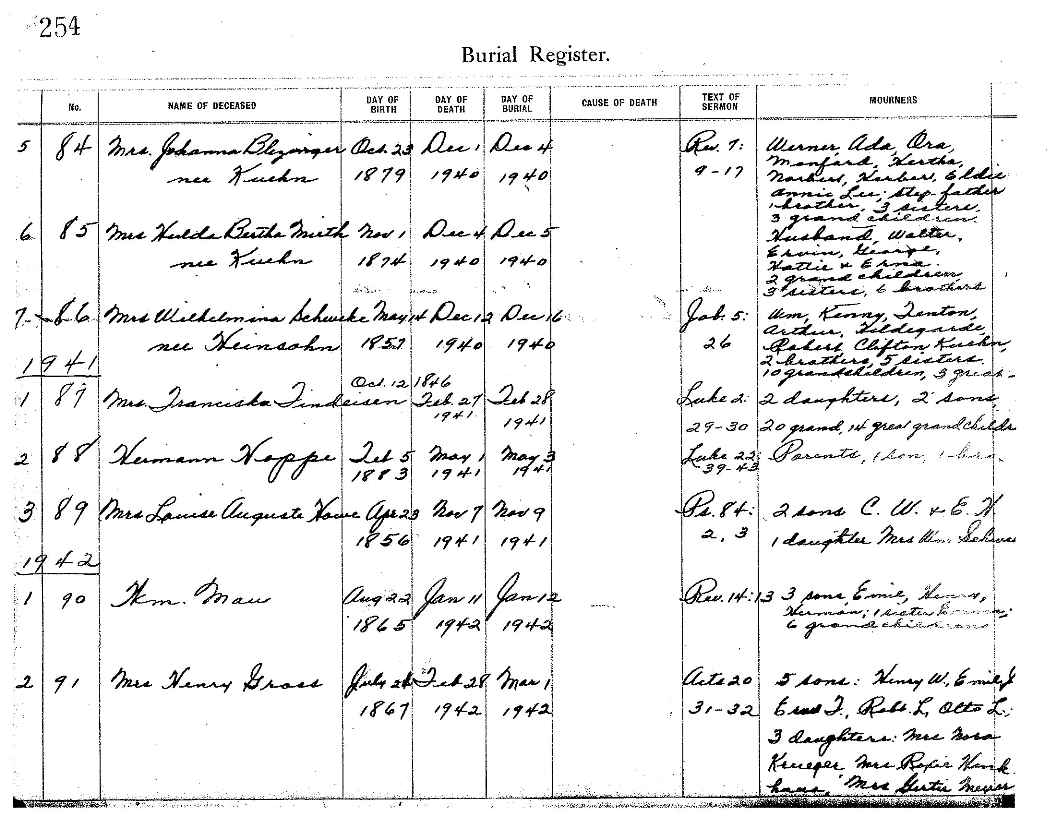 254
Burial Register.
No. NAME OF DECEASED DAY OF BIRTH DAY OF DEATH DAY OF BURIAL CAUSE OF DEATH TEXT OF SERMON MOURNERS
5 84 Mrs. Johanna Blezinger Oct. 23 Dec 1 Dec 4 Rev. 7: Werner, Ada, Ora,
Manford, Hertha,
nee Kuehn 1879 1940 1940 9-17 Norbert, Herbert, Eldie
Annie Lee; step-father
1 brother, 3 sisters,
3 grand children.
6 85 Mrs Hulda Bertha Mieth Nov 1 Dec 4 Dec 5 Husband, Walter,
Ervin, George,
nee Kuehn 1874 1940 1940 Hattie & Erna.
2 grand children,
3 sisters, 6 brothers
7 86 Mrs Wilhelmina Schweke May 14 Dec 12 Dec 16 Job. 5: Wm, Kenny, Fenton,
Arthur, Hildegarde,
nee Heinsohn 1857 1940 1940 26 Robert, Clifton Kuehn,
2 brothers, 5 sisters
1941 10 grandchildren, 3 great-
Oct. 12 1846
1 87 Mrs. Franciska Findeisen Feb 27 Feb 28 Luke 2: 2 daughters, 2 sons,
1941 1941 29-30 20 grand, 14 great grandchildr
2 88 Hermann Hoppe Feb 5 May 1 May 3 Luke 22: Parents, 1 son, 1
1883 1941 1941 39-43
3 89 Mrs Louise Auguste Howe Apr 23 Nov 7 Nov 9 Ps. 84: 2 sons C. W. & E. H
1856 1941 1941 2, 3 1 daughter Mrs Wm.
1942
1 90 Wm. Mau Aug 22 Jan 11 Jan 12 Rev. 14:13 3 sons Emil, Henry,
Herman; 1 sister Emma;
1865 1942 1942 6 grand children
2 91 Mrs Henry Gross July Feb 28 Mar 1 Acts 20 5 sons: Henry W, Emil J
1867 1942 1942 31-32 Robt. L, Otto L.;
3 daughters: Mrs Nora
Krueger Mrs Hink
haus, Mrs Gertie